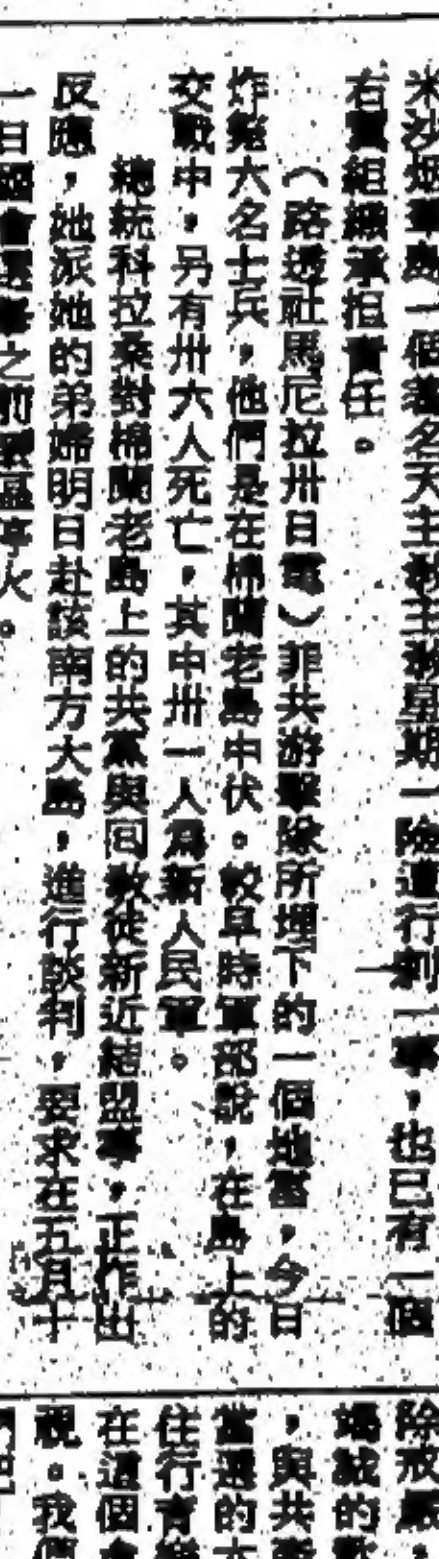 米沙烟羣島一個著名天主教主教星期一險遭行刺一事，也已有一個
右翼組織承担責任。
（路透社馬尼拉卅日電）菲共游擊隊所埋下的一個地雷，今日
炸斃六名士兵，他們是在棉蘭老島中伏。較早時軍部說，在島上的
交戰中，另有卅六人死亡，其中卅一人爲新人民軍。
總統科拉桑對棉蘭老島上的共黨與回教徒新近結盟事，正作出
反應，她派她的弟婦明日赴該南方大島，進行談判，要求在五月十
一日國會選舉之前 停火。
除戒嚴，
的
，與共
當選的
住行
在這個
視。我們